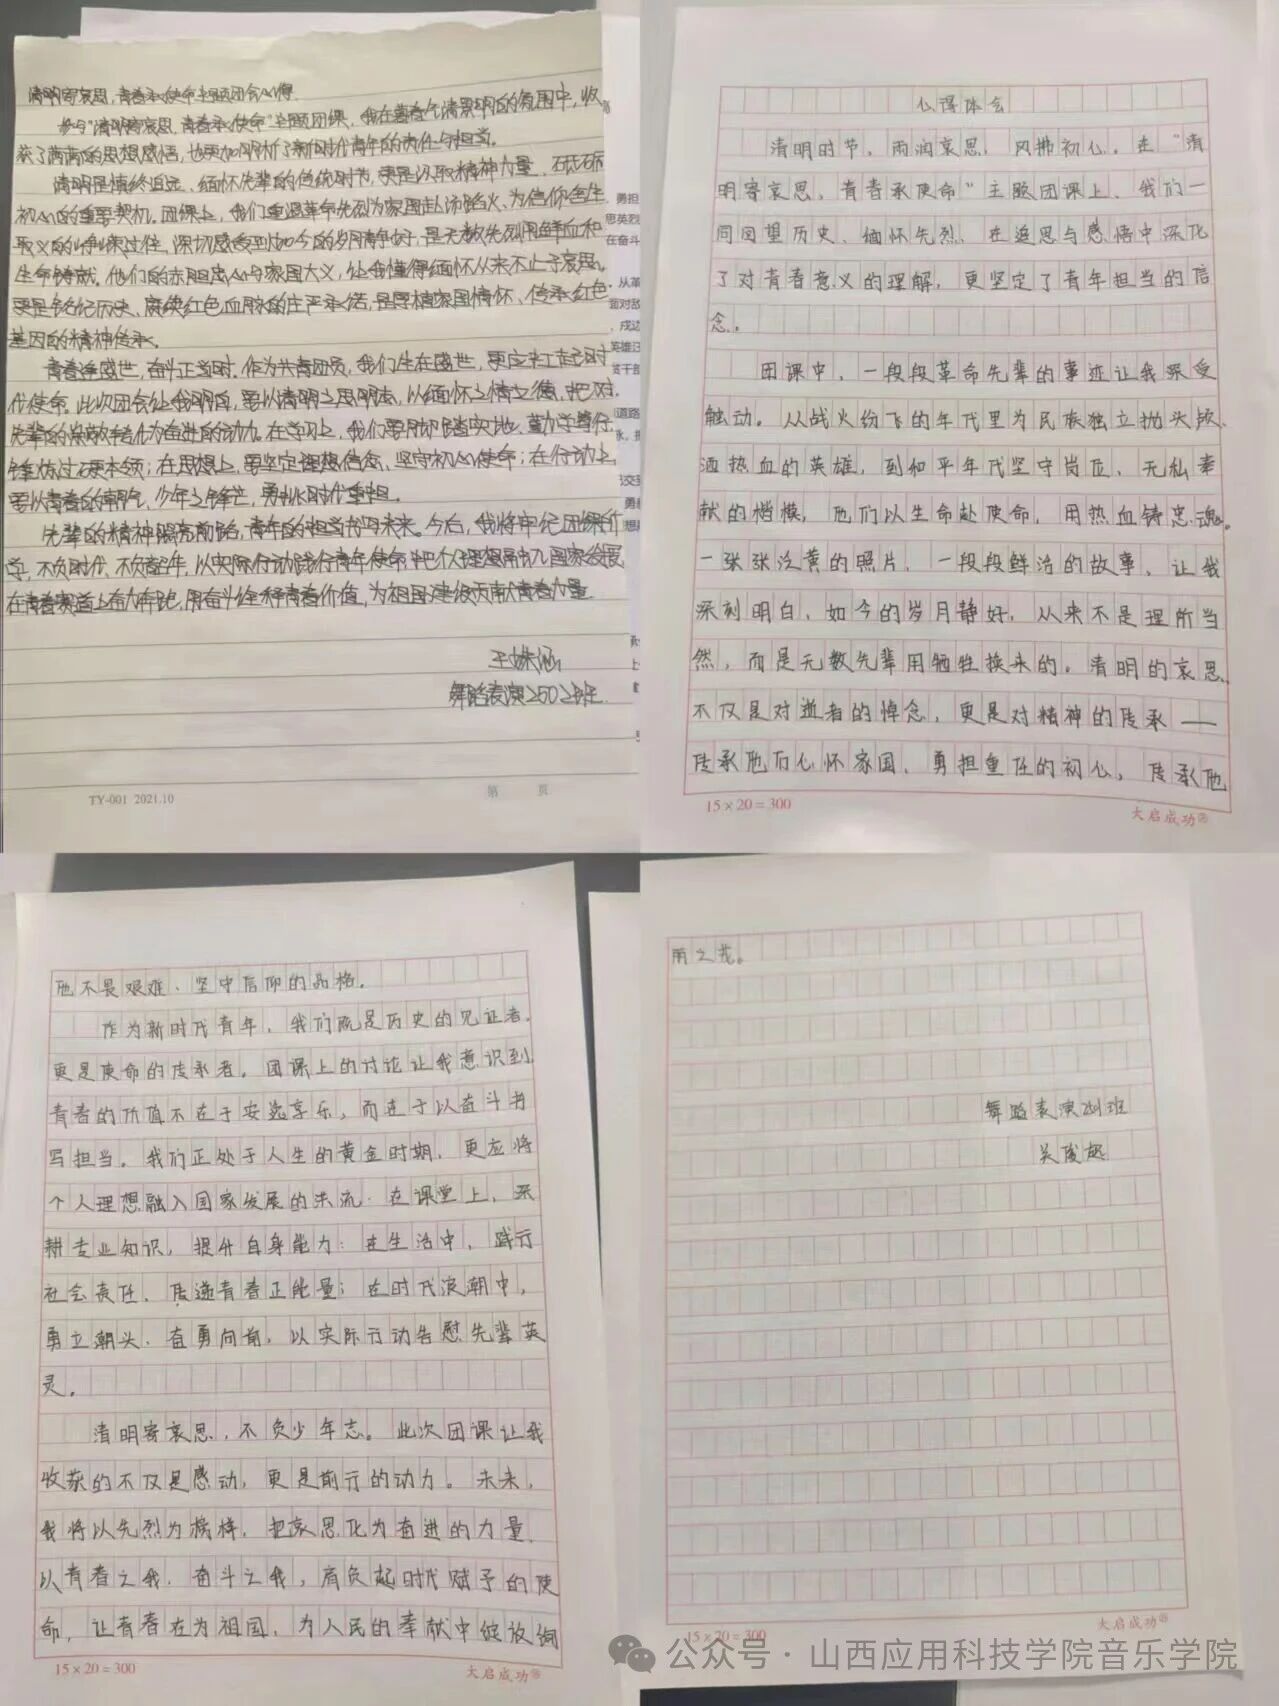 清明寄哀思，青春承使命主题团会心得
参与"清明寄哀思，青春承使命"主题团课，我在
的氛围中，收
获了满满的思想感悟，也更加明晰了新时代青年的责任与担当。
清明是慎终追远、缅怀先辈的传统时节，更是汲取精神力量、砥砺
初心的重要契机。团课上，我们重温革命先烈为家国赴汤蹈火、为信仰舍生
取义的峥嵘过往，深切感受到如今的岁月静好，是无数先烈用鲜血和
生命铸就。他们的赤胆忠心与家国大义，让我懂得缅怀从来不止于哀思，
更是铭记历史、赓续红色血脉的庄严承诺，是厚植家国情怀、传承红色
基因的精神传承。
青春逢盛世，奋斗正当时。作为共青团员，我们生在盛世，更应扛起时
代使命。此次团会让我明白，要以清明之思明志，以缅怀之情立德，把对
先辈的崇敬转化为奋进的动力。在学习上，我们要脚踏实地、勤学笃行
锤炼过硬本领；在思想上，要坚定理想信念、坚守初心使命；在行动上，
要以青春的朝气、少年之锋芒，勇挑时代重担。
先辈的精神照亮前路，青年的担当书写未来。今后，我将牢记团课所
学，不负时代、不负韶华，以实际行动践行青年使命，把个人理想融入国家发展
在青春赛道上奋力奔跑，用奋斗诠释青春价值，为祖国建设贡献青春力量
王姝涵
舞蹈表演2502班
TY-001 2021.10
第 页
心得体会
清明时节，雨润哀思，风拂初心。在"清
明寄哀思，青春承使命"主题团课上，我们一
同回望历史、缅怀先烈，在追思与感悟中深化
了对青春意义的理解，更坚定了青年担当的信
念。
团课中，一段段革命先辈的事迹让我深受
触动。从战火纷飞的年代里为民族独立抛头颅、
洒热血的英雄，到和平年代坚守岗位、无私奉
献的楷模，他们以生命赴使命，用热血铸忠魂。
一张张泛黄的照片，一段段鲜活的故事，让我
深刻明白，如今的岁月静好，从来不是理所当
然，而是无数先辈用牺牲换来的。清明的哀思，
不仅是对逝者的悼念，更是对精神的传承——
传承他们心怀家国、勇担重任的初心，传承他
15×20=300
大启成功
他不畏艰难、坚守信仰的品格。
作为新时代青年，我们既是历史的见证者，
更是使命的传承者。团课上的讨论让我意识到，
青春的价值不在于安逸享乐，而在于以奋斗书
写担当。我们正处于人生的黄金时期，更应将
个人理想融入国家发展的洪流：在课堂上，深
耕专业知识，提升自身能力；在生活中，践行
社会责任、传递青春正能量；在时代浪潮中，
勇立潮头、奋勇向前，以实际行动告慰先辈英
灵。
清明寄哀思，不负少年志。此次团课让我
收获的不仅是感动，更是前行的动力。未来，
我将以先烈为榜样，把哀思化为奋进的力量，
以青春之我、奋斗之我，肩负起时代赋予的使
命，让青春在为祖国、为人民的奉献中绽放绚
15×20=300
大启成功
丽之花。
舞蹈表演
班
大启成功
15×20=300
公众号·山西应用科技学院音乐学院